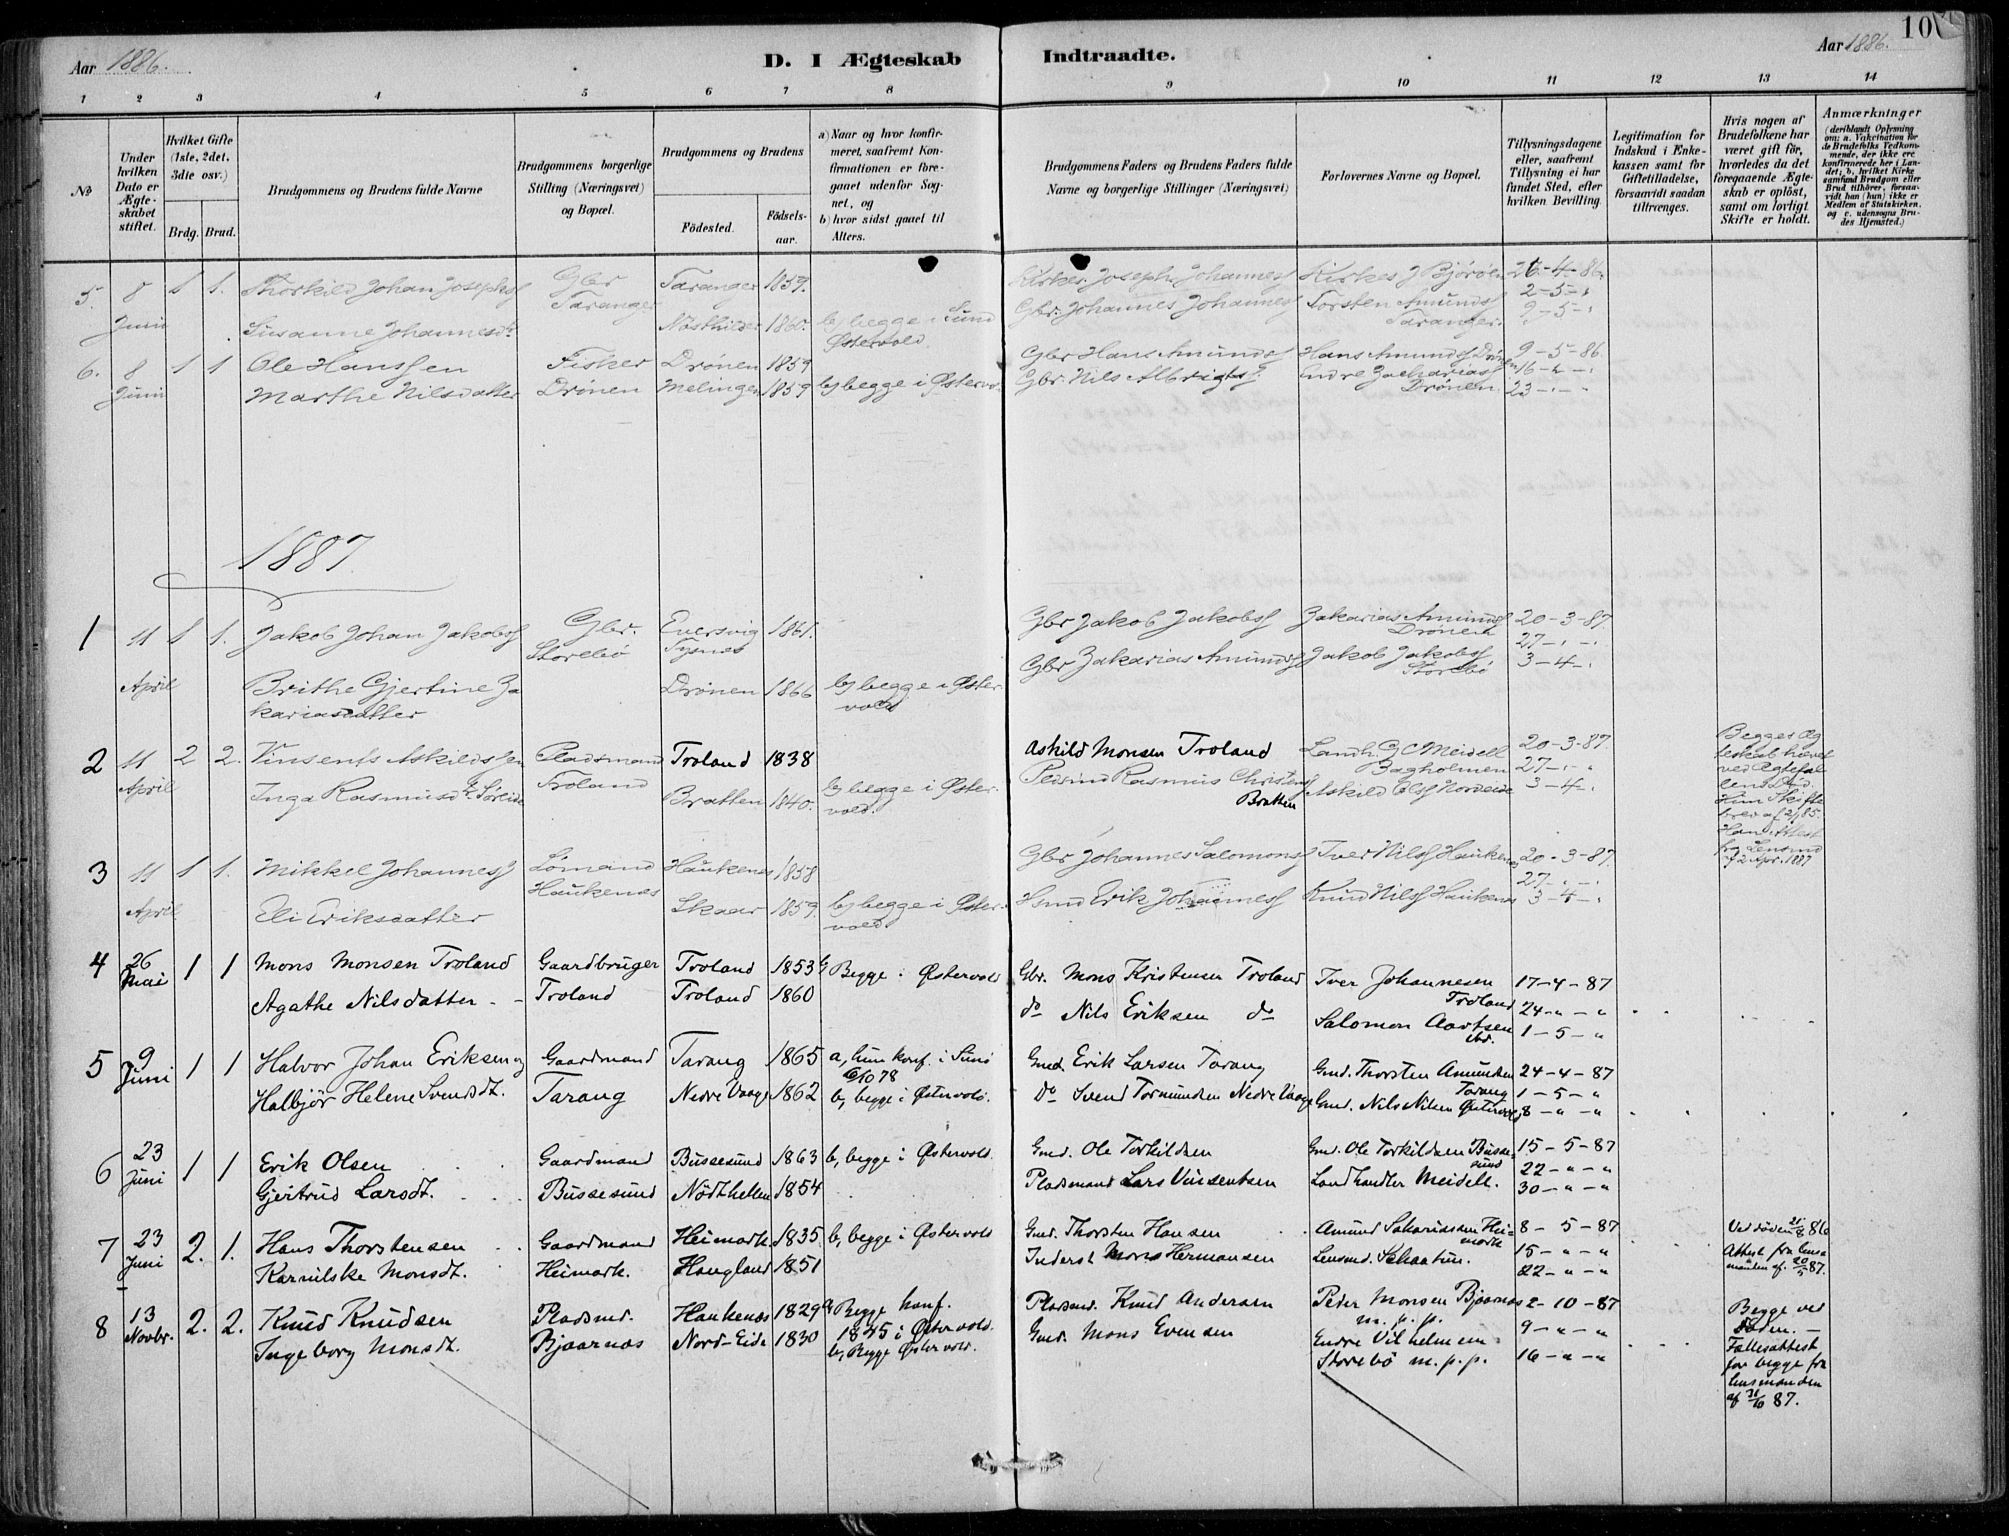 Aar 1886. D. I Ægteskab Indtraadte. Aar 1886. 10
1 2 3 4 5 6 7 8 9 10 11 12 13 14
№
Under hvilken Dato er Ægteskabet stiftet.
Hvilket Gifte (1ste, 2det, 3die osv.)
Brdg. Brud.
Brudgommens og Brudens fulde Navne
Brudgommens borgerlige Stilling (Næringsvei) og Bopæl.
Brudgommens og Brudens
Fødested. Fødselsaar.
a) Naar og hvor konfirmeret, saafremt Konfirmationen er foregaaet udenfor Sognet, og
b) hvor sidst gaaet til Alters.
Brudgommens Faders og Brudens Faders fulde Navne og borgerlige Stillinger (Næringsvei)
Forlovernes Navne og Bopæl.
Tillysningsdagene eller, saafremt Tillysning ei har fundet Sted, efter hvilken Bevilling.
Legitimation for Indskud i Enkekassen samt for Giftetilladelse, forsaavidt saadan tiltrænges.
Hvis nogen af Brudefolkene har været gift før, hvorledes da det foregaaende Ægteskab er opløst, samt om lovligt Skifte er holdt.
Anmærkninger (deriblandt Oplysning om: a. Vakcination for de Brudefolks Vedkommende, der ikke ere konfirmerede her i Landet; b. hvilket Kirkesamfund Brudgom eller Brud tilhører, forsaavidt han (hun) ikke er Medlem af Statskirken, og c. udensogns Brudes Hjemsted.)
5. 8 Juni 1 1. Thorkild Johan Josephs Gbr Taranger Taranger 1859. Kirkes. Joseph Johanness Kirkes J Bjørøen 26-4-86.
Susanne Johannesdr. Nøsthilder 1860. b) begge i Sund Østervold. Gbr. Johannes Johanness Torsten Amunds Taranger. 2-5-"
9-5-"
6. 8 Juni 1 1 Ole Hanssen Fisker Drønen Drønen 1859 Gbr Hans Amunds Hans Amunds Drønen 9-5-86
Marthe Nilsdatter Melingen 1859 b) begge i Østerv. Gbr. Nils Albrigts Endre Zacharias Drønen. 16-"-"
23-"-"
1887.
1 11 April 1 1. Jakob Johan Jakobs Gbr. Storebø Eversvig Tysnes 1861. Gbr Jakob Jakobs Zakarias Amunds Drønen 20-3-87.
27-"-"
Brithe Gjertine Zakariasdatter Drønen 1866 b) begge i Østervold Gbr Zakarias Amunds Jakob Jakobs Storebø 3-4-"
2 11 April 2 2. Vinsents Askildssen Pladsmand Troland Troland 1838 Askild Monsen Troland Landh. G C Meidell Bagholmen 20-3-87.
27-"-"
Inga Rasmusdr. Søreide Bratten 1840. b) begge i Østervold. Rasmus Christens Bratten Askild Ols Nordeide 3-4-"
Begges Ægteskab hævet ved Ægtefællens Død.
3 11 April 1 1. Mikkel Johanness Haukenæs Haukenes 1858 Gbr Johannes Salomons Iver Nils Haukenes 20-3-87.
27-"-"
Eli Eriksdatter Skaar 1859. b) begge i Østervold Hsmd Erik Johanness Knud Nils Haukenes 3-4-"
4 26 Mai 1 1 Mons Monsen Troland Gaardbruger Troland 1853 b, Begge i Østervold Gbr. Mons Kristensen Troland Iver Johannesen Troland 17-4-87
Agathe Nilsdatter Troland Troland 1860 do Nils Eriksen do Salomon Aartsen ibd. 24-"-"
1-5-"
5 9 Juni 1 1 Halvor Johan Eriksen og Gaardmand Tarang 1865 a, hun konf. i Sund 6/10 78 Gmd. Erik Larsen Tarang Gmd. Thorsten Amundsen Tarang 24-4-87
Halbjør Helene Svendsdt. Tarang Nedre Vaage 1862 b, begge i Østervold. do Svend Tormundsen Nedre Vaage Gmd. Nils Nilsen Østervold 1-5-"
8-"-"
6 23 Juni 1 1 Erik Olsen Gaardmand Bussesund 1863 b, begge i Østervold. Gmd. Ole Torkildsen Gmd. Ole Torkildsen Bussesund 15-5-87
22-"-"
Gjertrud Larsdt. Bussesund Nødthellen 1854 Pladsmand Lars Vinsentsen Landhandler Meidell. 30-"-"
7 23 Juni 2. 1. Hans Thorstensen Gaardmand Heimark 1835 b, begge i Østervold Gmd. Thorsten Hansen Amund Sakariassen Heimark 8-5-87 Ved døden 86
Karnilske Monsdt. Heimark. Haugland 1851 Inderst Mons Hermansen Lensmd. Schaatun. 15-"-" Attest fra lensmanden af 20/5 87.
22-"-"
8 13 Novbr. 2. 2. Knud Knudsen Pladsmd. Haukenæs 1829 a, Begge konf. 1845 i Østervold. Pladsmd. Knud Andersen Peder Monsen Bjaarnæs m. p. p. 2-10-87 Begge ved døden. –
Ingeborg Monsdt. Bjaarnæs Nord-Eide 1830 b, Begge Østervold. Gmd. Mons Evensen Endre Vilhelmsen Storebø m. p. p. 9-"-" Fællesattest for begge fra lensmanden af 31/10 87.
16-"-"